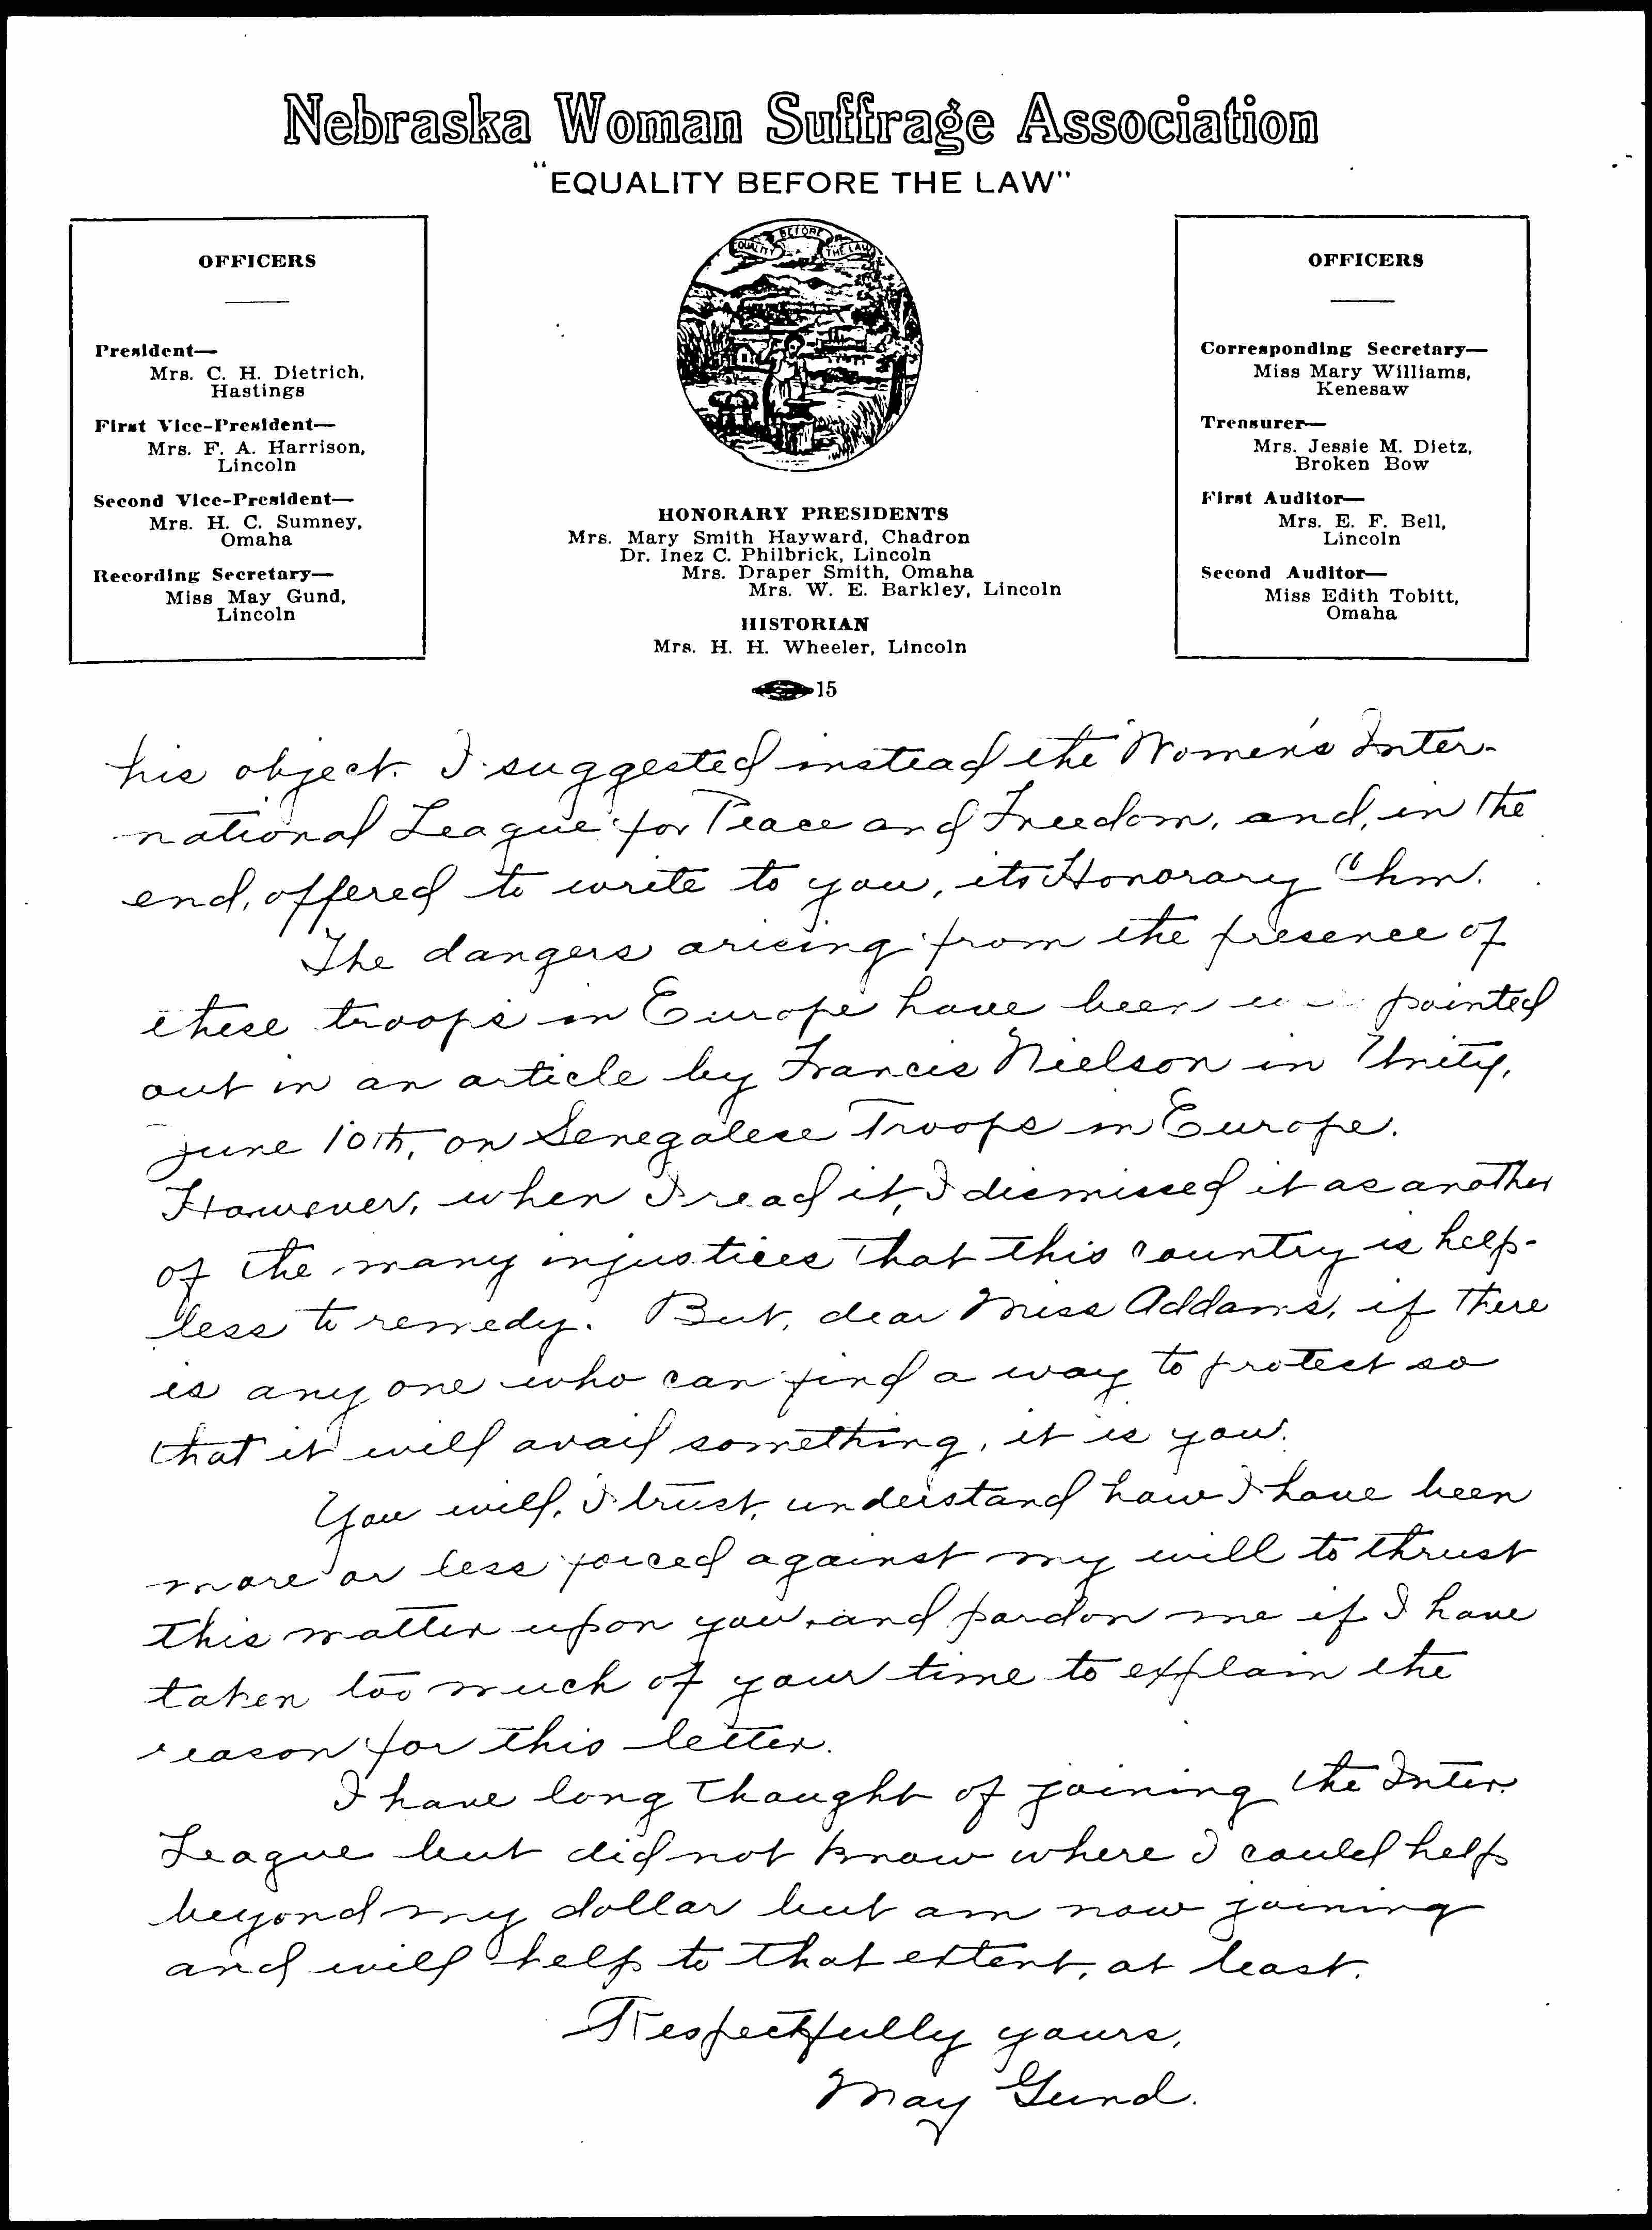 Nebraska Woman Suffrage Association
"EQUALITY BEFORE THE LAW"
OFFICERS
President—
Mrs. C. H. Dietrich,
Hastings
First Vice-President—
Mrs. F. A. Harrison,
Lincoln
Second Vice-President—
Mrs. H. C. Sumney,
Omaha
Recording Secretary—
Miss May Gund,
Lincoln
EQUALITY BEFORE THE LAW
HONORARY PRESIDENTS
Mrs. Mary Smith Hayward, Chadron
Dr. Inez C. Philbrick, Lincoln
Mrs. Draper Smith, Omaha
Mrs. W. E. Barkley, Lincoln
HISTORIAN
Mrs. H. H. Wheeler, Lincoln
15
OFFICERS
Corresponding Secretary—
Miss Mary Williams,
Kenesaw
Treasurer—
Mrs. Jessie M. Dietz,
Broken Bow
First Auditor—
Mrs. E. F. Bell,
Lincoln
Second Auditor—
Miss Edith Tobitt,
Omaha
his object. I suggested instead the Women's Inter-
national League for Peace and Freedom, and, in the
end, offered to write to you, its Honorary Chm.
The dangers arising from the presence of
these troops in Europe have been pointed
out in an article by Francis Nielson in Unity,
June 10th, on Senegalese Troops in Europe.
However, when I read it, I dismissed it as another
of the many injustices that this country is help-
less to remedy. But, dear Miss Addams, if there
is any one who can find a way to protect so
that it will avail something, it is you.
You will, I trust, understand how I have been
more or less forced against my will to thrust
this matter upon you, and pardon me if I have
taken too much of your time to explain the
reason for this letter.
I have long thought of joining the Inter.
League but did not know where I could help
beyond my dollar but am now joining
and will help to that extent, at least.
Respectfully yours,
May Gund.